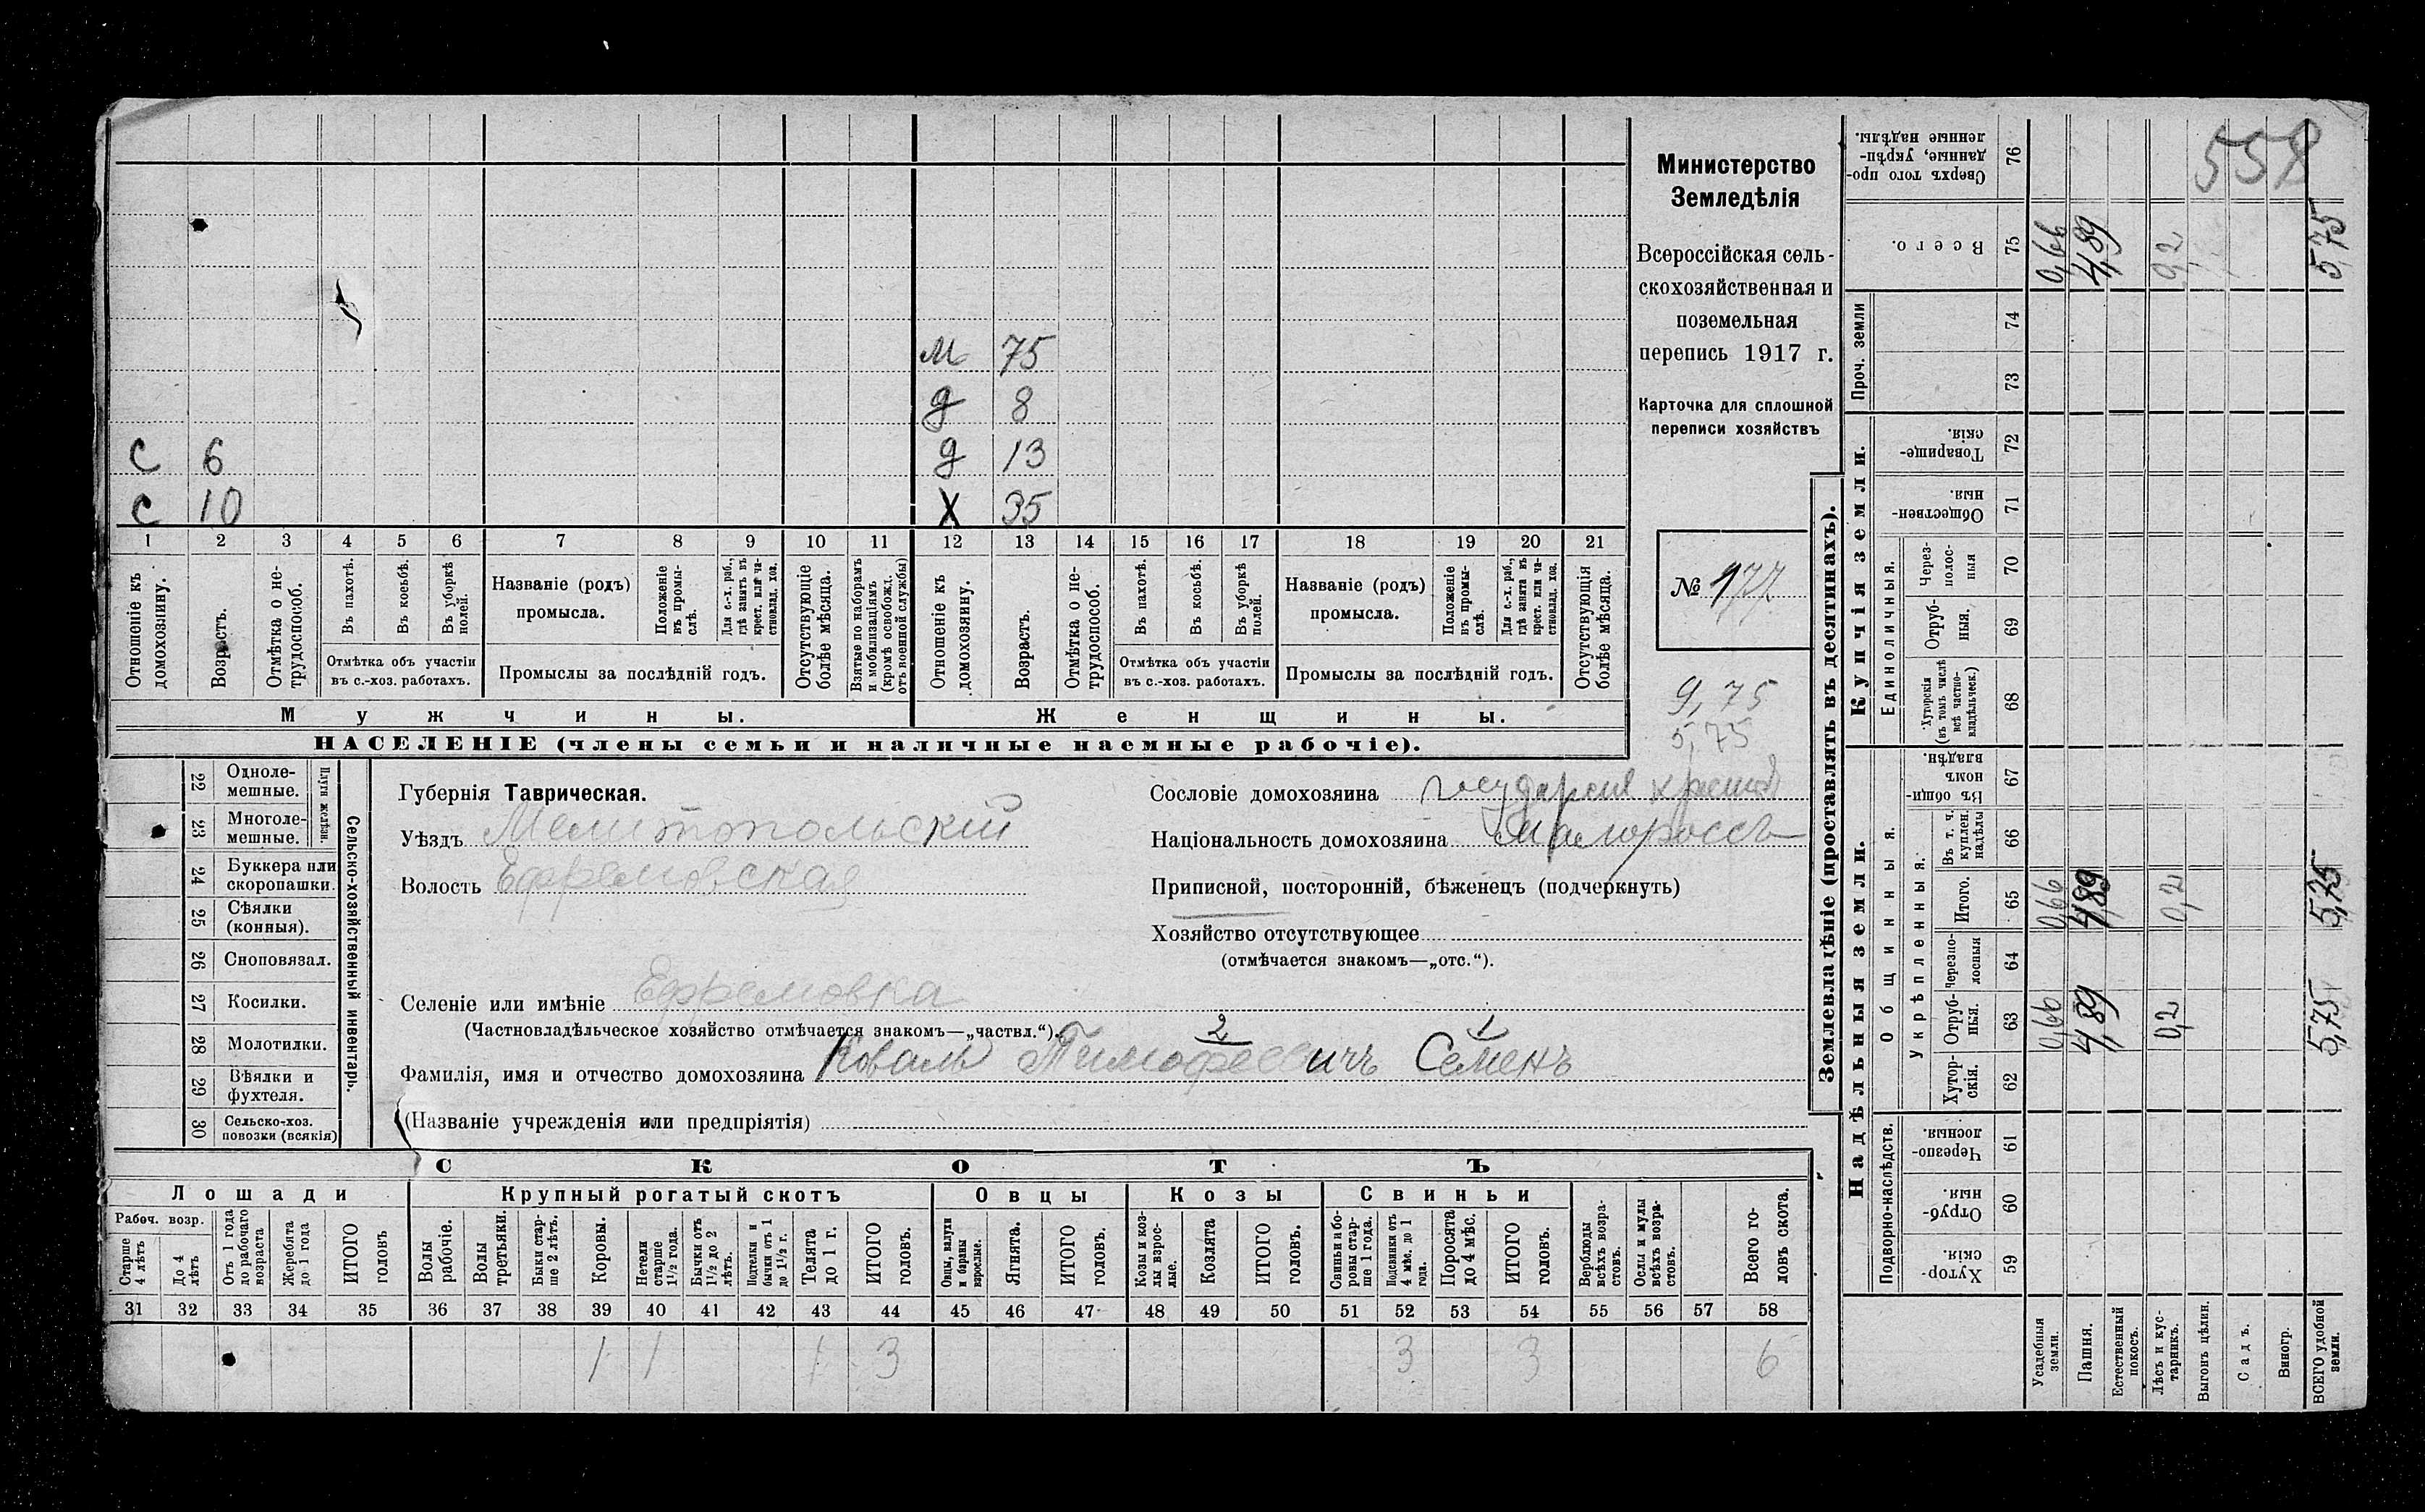 Министерство
Земледѣлія
Всероссійская сель-
скохозяйственная и
поземельная
перепись 1917 г.
Карточка для сплошной
переписи хозяйствъ
№ 177.
9,75
5,75
558
м 75
д 8
с 6 д 13
с 10 Х 35
1 2 3 4 5 6 7 8 9 10 11 12 13 14 15 16 17 18 19 20 21
Отношеніе къ домохозяину.
Возрастъ.
Отмѣтка о не-трудоспособ.
Въ пахотѣ.
Въ косьбѣ.
Въ уборкѣ полей.
Отмѣтка объ участіи
въ с.-хоз. работахъ.
Названіе (родъ)
промысла.
Положеніе въ промы-слѣ.
Для с.-х. раб., гдѣ занятъ въ крест. или ча-стновлад. хоз.
Промыслы за послѣдній годъ.
Отсутствующіе болѣе мѣсяца.
Взятые по наборамъ и мобилизаціямъ (кромѣ освобожд. отъ военной службы)
Отношеніе къ домохозяину.
Возрастъ.
Отмѣтка о не-трудоспособ.
Въ пахотѣ.
Въ косьбѣ.
Въ уборкѣ полей.
Отмѣтка объ участіи
въ с.-хоз. работахъ.
Названіе (родъ)
промысла.
Положеніе въ промы-слѣ.
Для с.-х. раб., гдѣ занята въ крест. или ча-стновлад. хоз.
Промыслы за послѣдній годъ.
Отсутствующія болѣе мѣсяца.
Мужчины. Женщины.
НАСЕЛЕНІЕ (члены семьи и наличные наемные рабочіе).
Сельско-хозяйственный инвентарь.
Плуги желѣзн.
22 Одноле-мешные.
23 Многоле-мешные.
24 Буккера или скоропашки.
25 Сѣялки (конныя).
26 Сноповязал.
27 Косилки.
28 Молотилки.
29 Вѣялки и фухтеля.
30 Сельско-хоз. повозки (всякія)
Губернія Таврическая.
Уѣздъ Мелитопольскій
Волость Ефремовская
Селеніе или имѣніе Ефремовка
(Частновладѣльческое хозяйство отмѣчается знакомъ—„частвл.“).
2 1
Фамилія, имя и отчество домохозяина Коваль Тимофеевичъ Семенъ
(Названіе учрежденія или предпріятія)
Сословіе домохозяина
Національность домохозяина малороссъ
Приписной, посторонній, бѣженецъ (подчеркнуть)
Хозяйство отсутствующее
(отмѣчается знакомъ—„отс.“).
СКОТЪ
Лошади Крупный рогатый скотъ Овцы Козы Свиньи
Рабоч. возр.
Старше 4 лѣтъ
До 4 лѣтъ
Отъ 1 года до рабочаго возраста
Жеребята до 1 года
ИТОГО головъ
Волы рабочіе.
Волы третьяки.
Быки стар-ше 2 лѣтъ.
Коровы.
Нетели старше 1½ года.
Бычки отъ 1½ до 2 лѣтъ.
Подтелки и бычки отъ 1 до 1½ г.
Телята до 1 г.
ИТОГО головъ.
Овцы, валухи и бараны взрослые.
Ягнята.
ИТОГО головъ.
Козы и коз-лы взрос-лые.
Козлята
ИТОГО головъ.
Свиньи и бо-ровы стар-ше 1 года.
Подсвинки отъ 4 мѣс. до 1 года.
Поросята до 4 мѣс.
ИТОГО головъ.
Верблюды всѣхъ возра-стовъ.
Ослы и мулы всѣхъ возра-стовъ.
Всего го-ловъ скота.
31 32 33 34 35 36 37 38 39 40 41 42 43 44 45 46 47 48 49 50 51 52 53 54 55 56 57 58
1 1 1 3 3 3 6
Землевладѣніе (проставлять въ десятинахъ).
Надѣльныя земли. Купчія земли. Проч. земли
Подворно-наслѣдств.
Общинныя.
Укрѣпленныя.
Единоличныя.
59 Хутор-скія.
60 Отруб-ныя.
61 Черезпо-лосныя.
62 Хутор-скія.
63 Отруб-ныя.
64 Черезпо-лосныя
65 Итого.
66 Въ т. ч. куплен. надѣлы
67 Въ общин-номъ владѣн.
68 Хуторскія (въ томъ числѣ всѣ частно-владѣльческ.)
69 Отруб-ныя.
70 Через-полос-ныя
71 Обществен-ныя.
72 Товарище-скія.
73
74
75 Всего.
76 Сверхъ того про-данные, укрѣп-ленные надѣлы.
Усадебныя земли. 0,66 0,66 0,66
Пашня. 4,89 4,89 4,89
Естественный покосъ.
Лѣсъ и кус-тарникъ. 0,2 0,2 0,2
Выгонъ цѣлин.
Садъ.
Виногр.
ВСЕГО удобной земли. 5,75 5,75 5,75